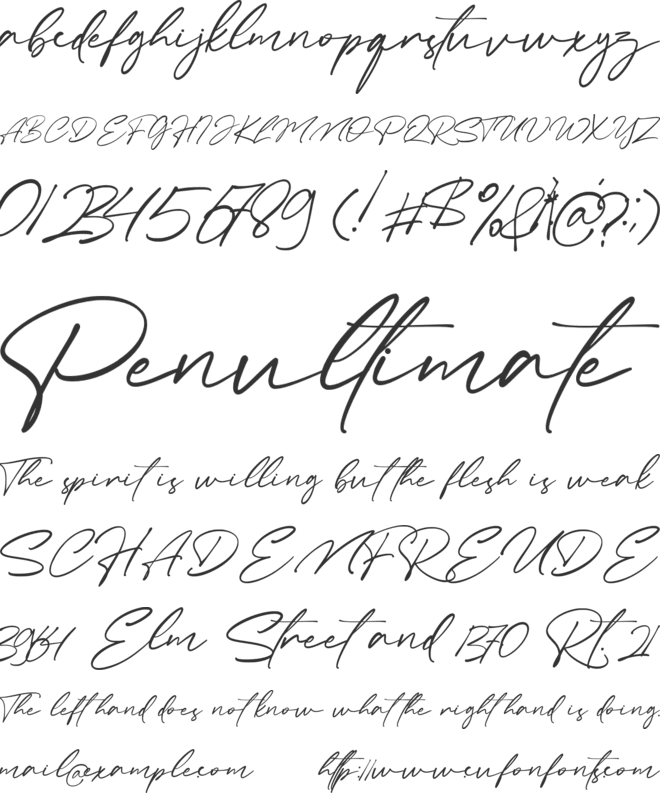 abcdefghijklmnopqrstuvwxyz
ABCDEFGHIJKLMNOPQRSTUVWXYZ
0123456789 (!#$%&*@?:;)
Penultimate
The spirit is willing but the flesh is weak
SCHADENFREUDE
3964 Elm Street and 1370 Rt. 21
The left hand does not know what the right hand is doing.
mail@example.com http://www.cufonfonts.com